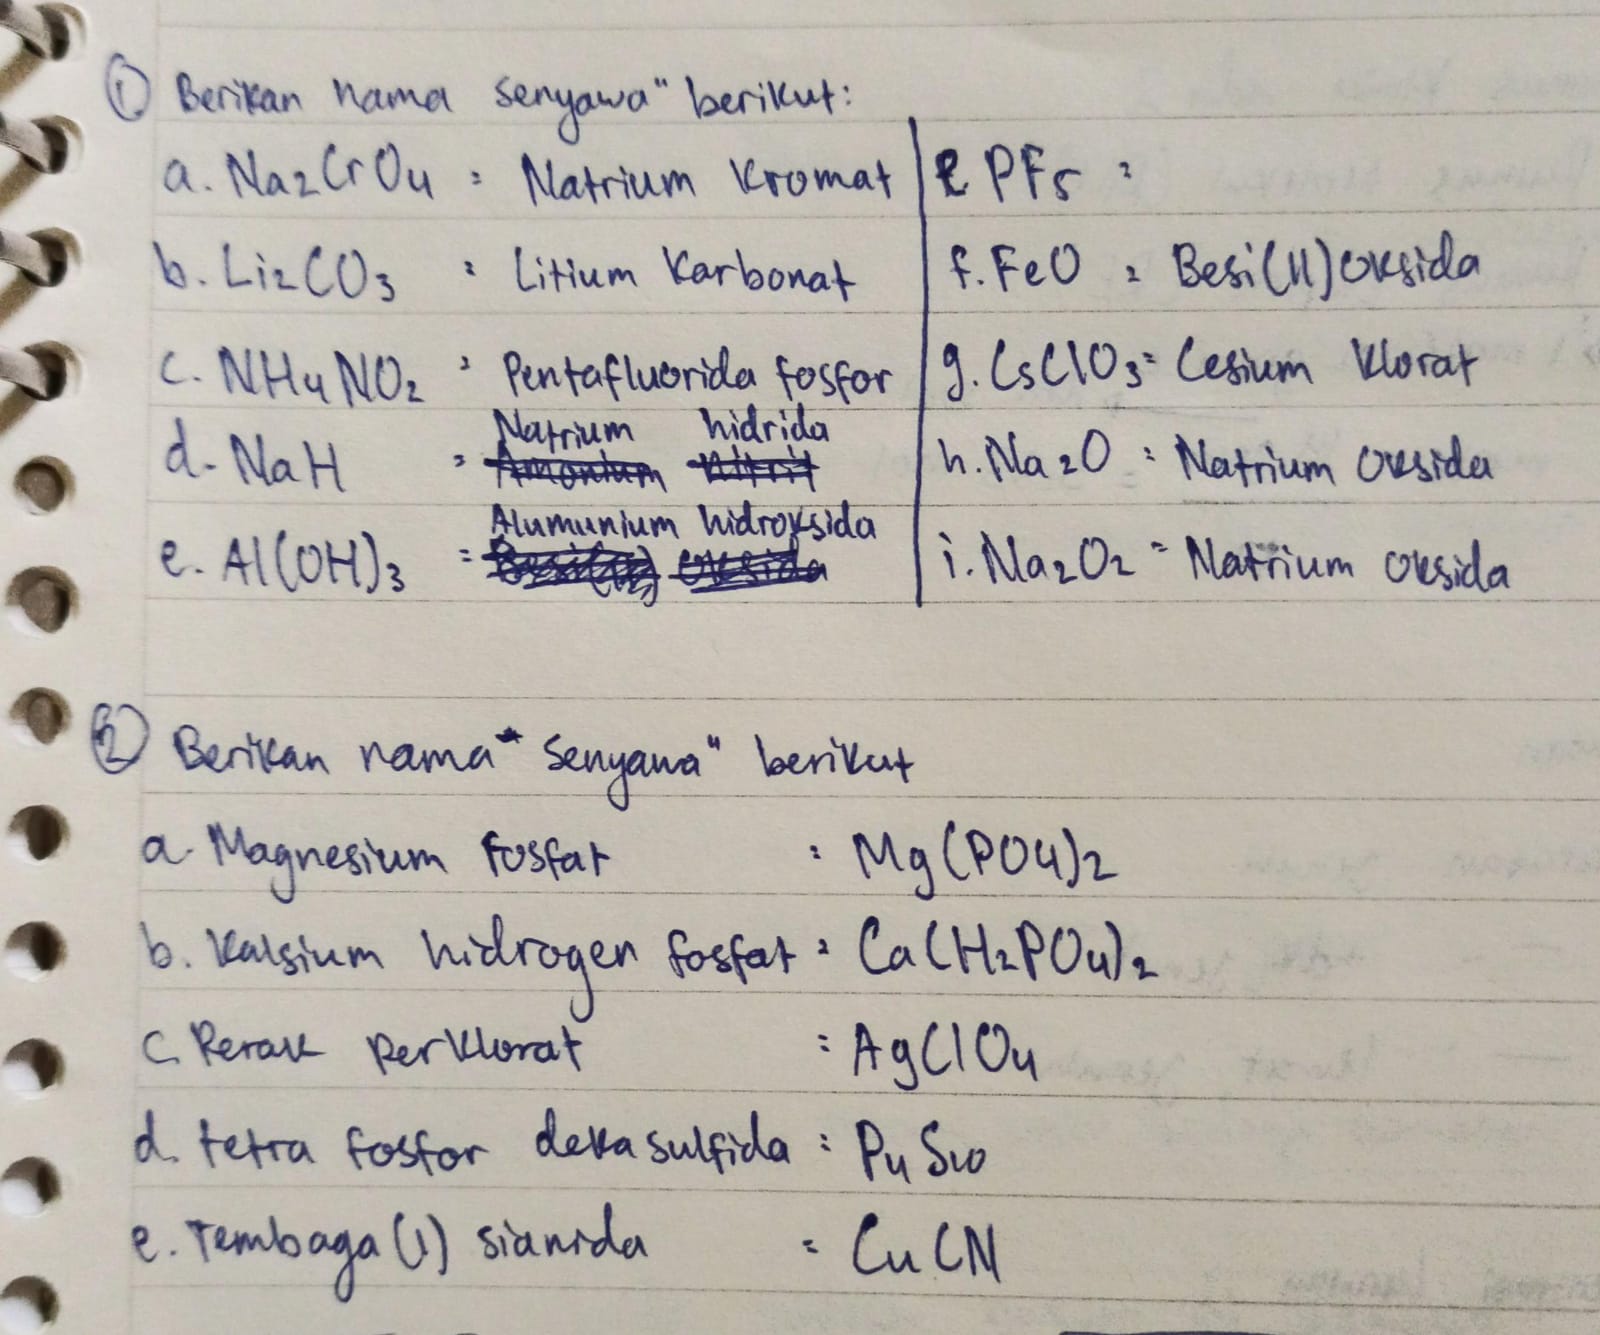 ① Berikan nama senyawa" berikut:
a. Na2CrO4 = Natrium Kromat
b. Li2CO3 = Litium Karbonat
c. NH4NO2 = Pentafluorida fosfor
Natrium hidrida
d. NaH = Amonium nitrit
Alumunium hidroksida
e. Al(OH)3 = Besi(II) oksida
e PF5 =
f. FeO = Besi(II) oksida
g. CsClO3 = Cesium Klorat
h. Na2O = Natrium Oksida
i. Na2O2 = Natrium oksida
② Berikan nama senyawa" berikut
a. Magnesium fosfat : Mg(PO4)2
b. Kalsium hidrogen fosfat = Ca(H2PO4)2
c. Perak perklorat : AgClO4
d. tetra fosfor deka sulfida : P4S10
e. Tembaga(I) sianida = CuCN